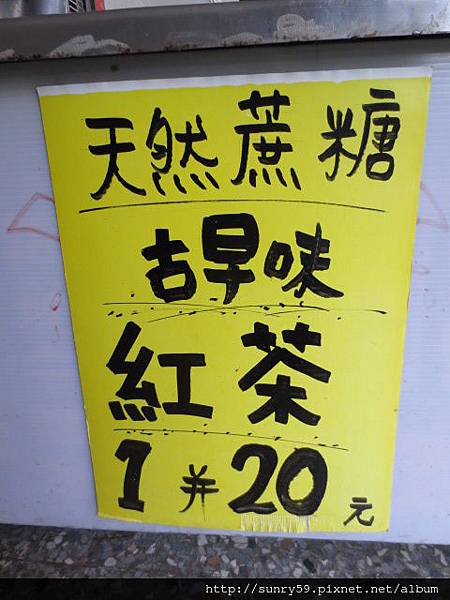 天然蔗糖
古早味
紅茶
1并20元
http://sunry59.pixnet.net/album